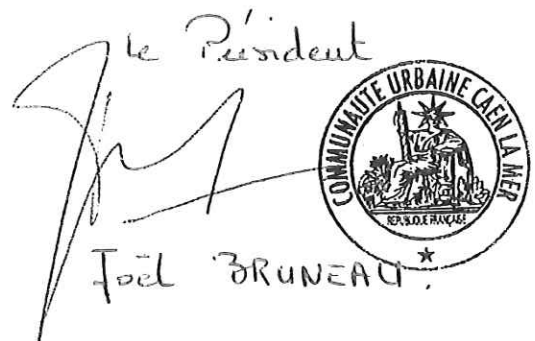 Le Président
COMMUNAUTE URBAINE CAEN LA MER
REPUBLIQUE FRANÇAISE
Joël BRUNEAU.